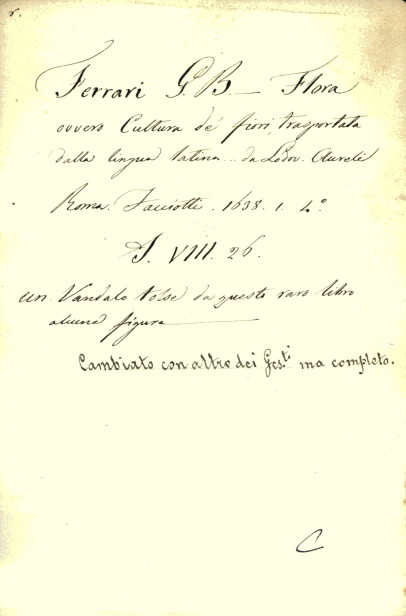 r.
Ferrari G. B. — Flora
ovvero Cultura de' fiori, trasportata
dalla lingua latina .. da Lodov. Aureli
Roma. Facciotti. 1638. 1. 4º
S. VIII. 26.
un Vandalo tolse da questo raro libro
alcune figure
Cambiato con altro dei Ges.ti ma completo.
C